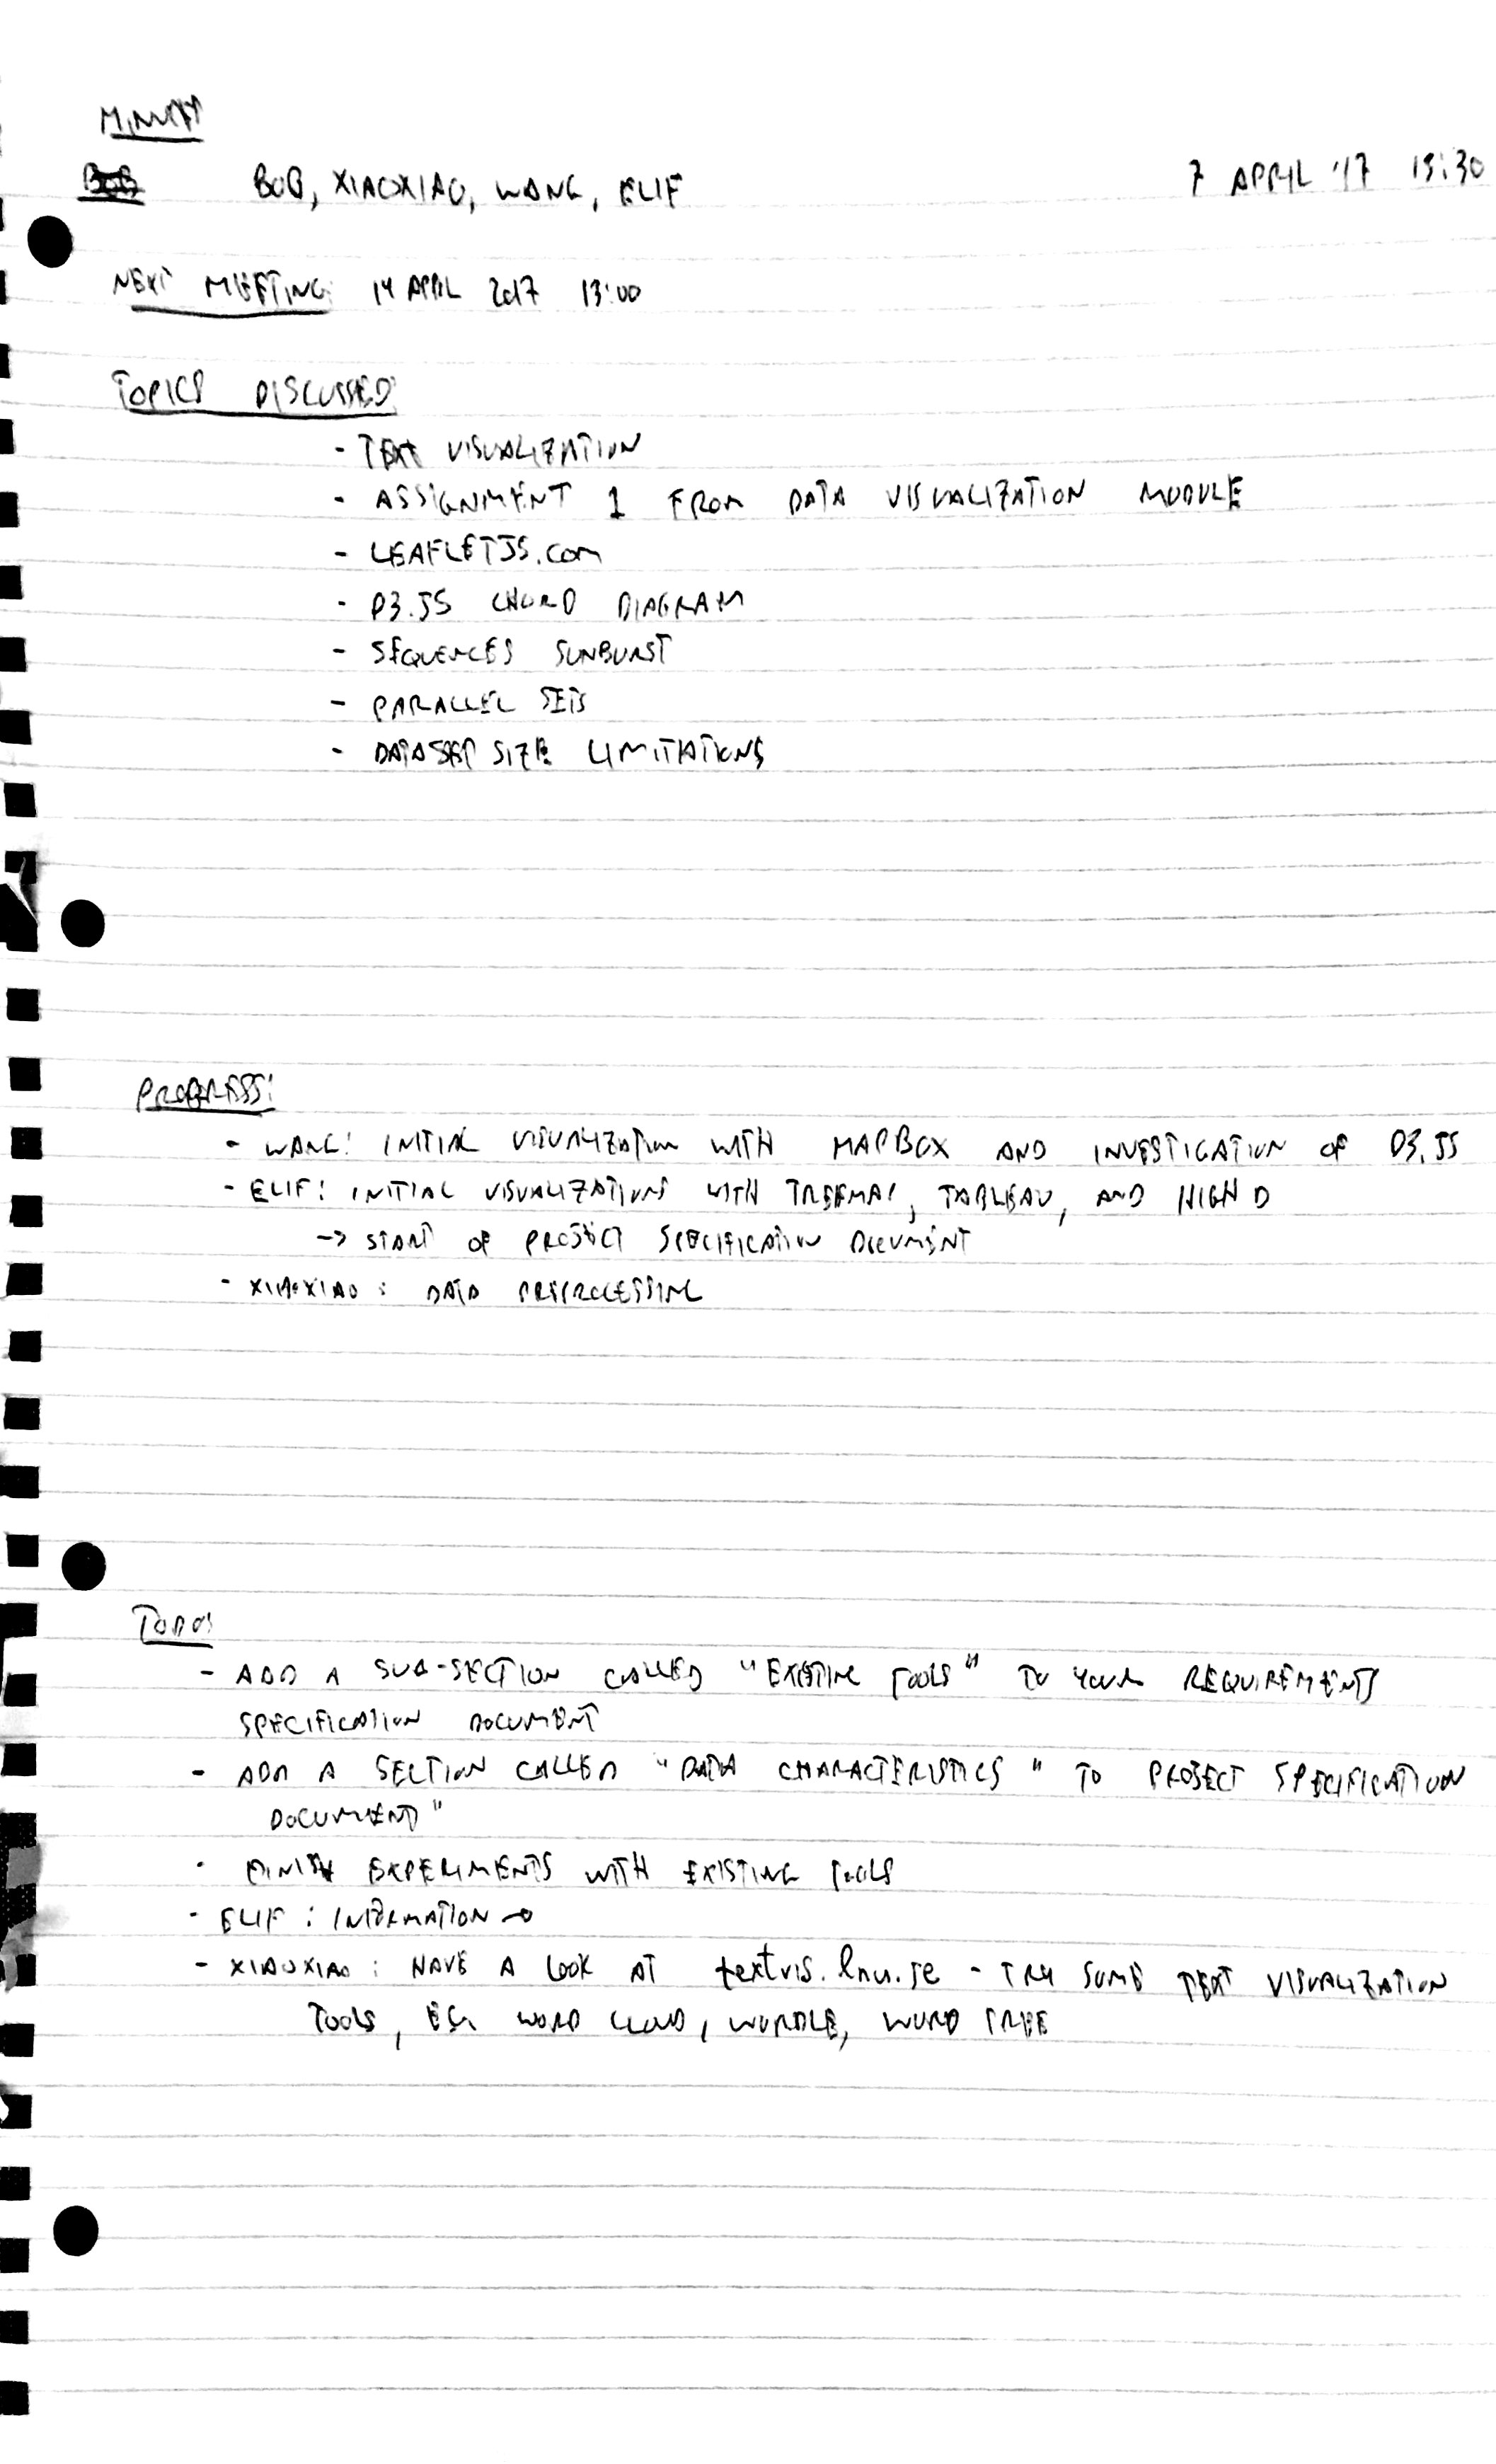 MINUTES
BOB
BOB, XIAOXIAO, WANG, ELIF
7 APRIL '17 15:30
NEXT MEETING: 14 APRIL 2017 13:00
TOPICS DISCUSSED:
- TEXT VISUALIZATION
- ASSIGNMENT 1 FROM DATA VISUALIZATION MODULE
- LEAFLETJS.com
- D3.JS CHORD DIAGRAM
- SEQUENCES SUNBURST
- PARALLEL SETS
- DATASET SIZE LIMITATIONS
PROGRESS:
- WANG: INITIAL VISUALIZATION WITH MAPBOX AND INVESTIGATION OF D3.JS
- ELIF: INITIAL VISUALIZATIONS WITH TREEMAP, TABLEAU, AND HIGH D
-> START OF PROJECT SPECIFICATION DOCUMENT
- XIAOXIAO: DATA PREPROCESSING
TODO:
- ADD A SUB-SECTION CALLED "EXISTING TOOLS" TO YOUR REQUIREMENTS
SPECIFICATION DOCUMENT
- ADD A SECTION CALLED "DATA CHARACTERISTICS" TO PROJECT SPECIFICATION
DOCUMENT"
- FINISH EXPERIMENTS WITH EXISTING TOOLS
- ELIF: INFORMATION
- XIAOXIAO: HAVE A LOOK AT textvis.lnu.se - TRY SOME TEXT VISUALIZATION
TOOLS, EG. WORD CLOUD, WORDLE, WORD TREE